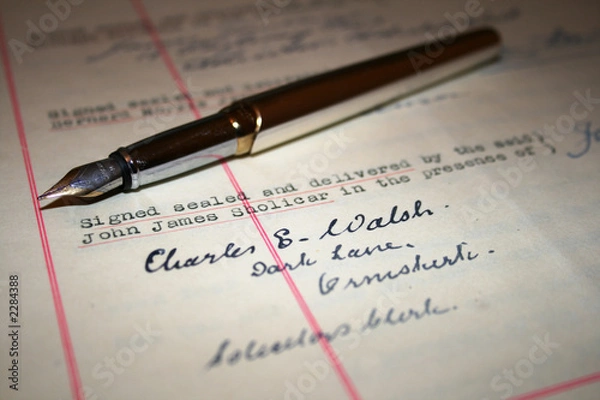 Signed sealed and
Signed sealed and delivered by the said)
John James Sholicar in the presence of )
Charles E. Walsh.
Dark Lane.
Ormskirk.
Solicitors Clerk.
Adobe Stock | #2284388